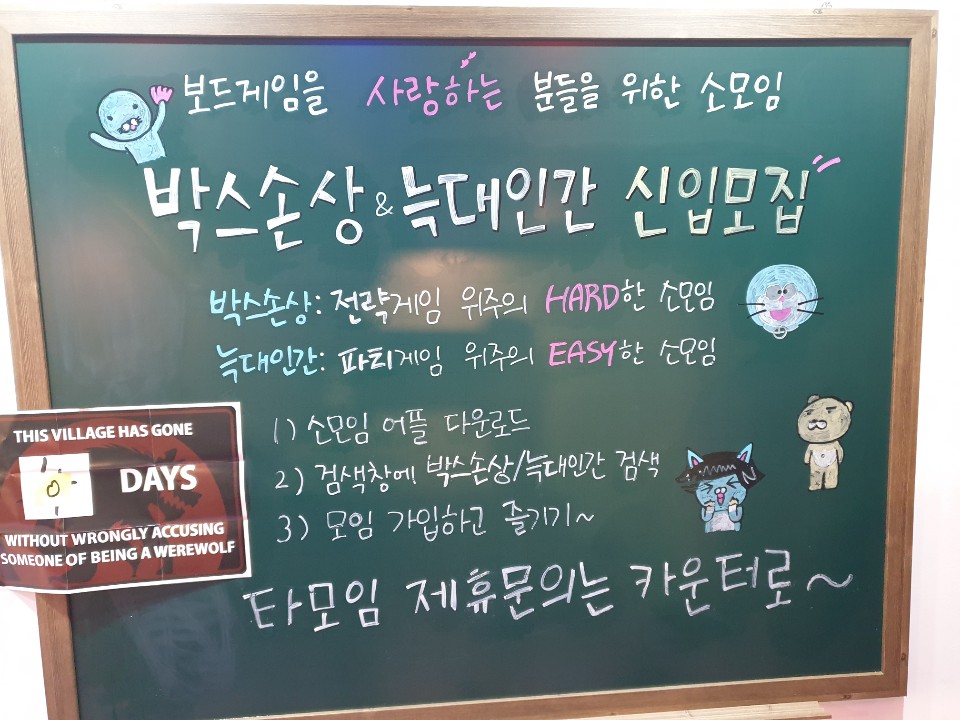 보드게임을 사랑하는 분들을 위한 소모임
박스손상 & 늑대인간 신입모집
박스손상: 전략게임 위주의 HARD한 소모임
늑대인간: 파티게임 위주의 EASY한 소모임
1) 소모임 어플 다운로드
2) 검색창에 박스손상/늑대인간 검색
3) 모임 가입하고 즐기기~
타모임 제휴문의는 카운터로~
THIS VILLAGE HAS GONE
0 DAYS
WITHOUT WRONGLY ACCUSING
SOMEONE OF BEING A WEREWOLF